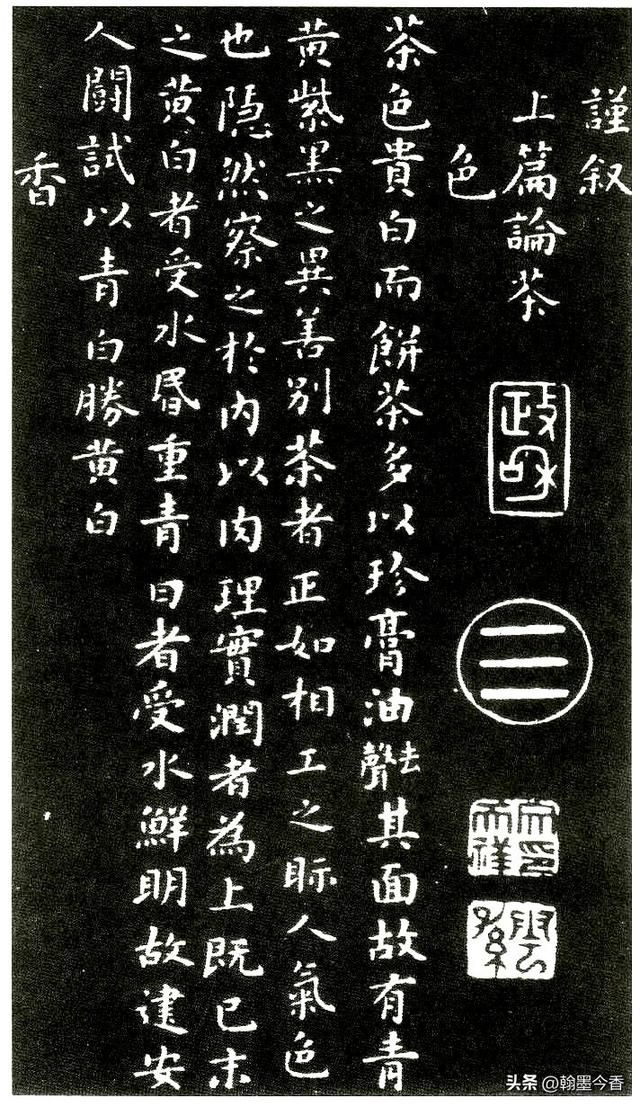 謹叙
上篇論茶
色
茶色貴白而餅茶多以珍膏油去聲其面故有青
黄紫黑之異善别茶者正如相工之眎人氣色
也隠然察之於内以肉理實潤者為上既已末
之黄白者受水昬重青白者受水鮮明故建安
人鬪試以青白勝黄白
香
政和
头条 @翰墨今香